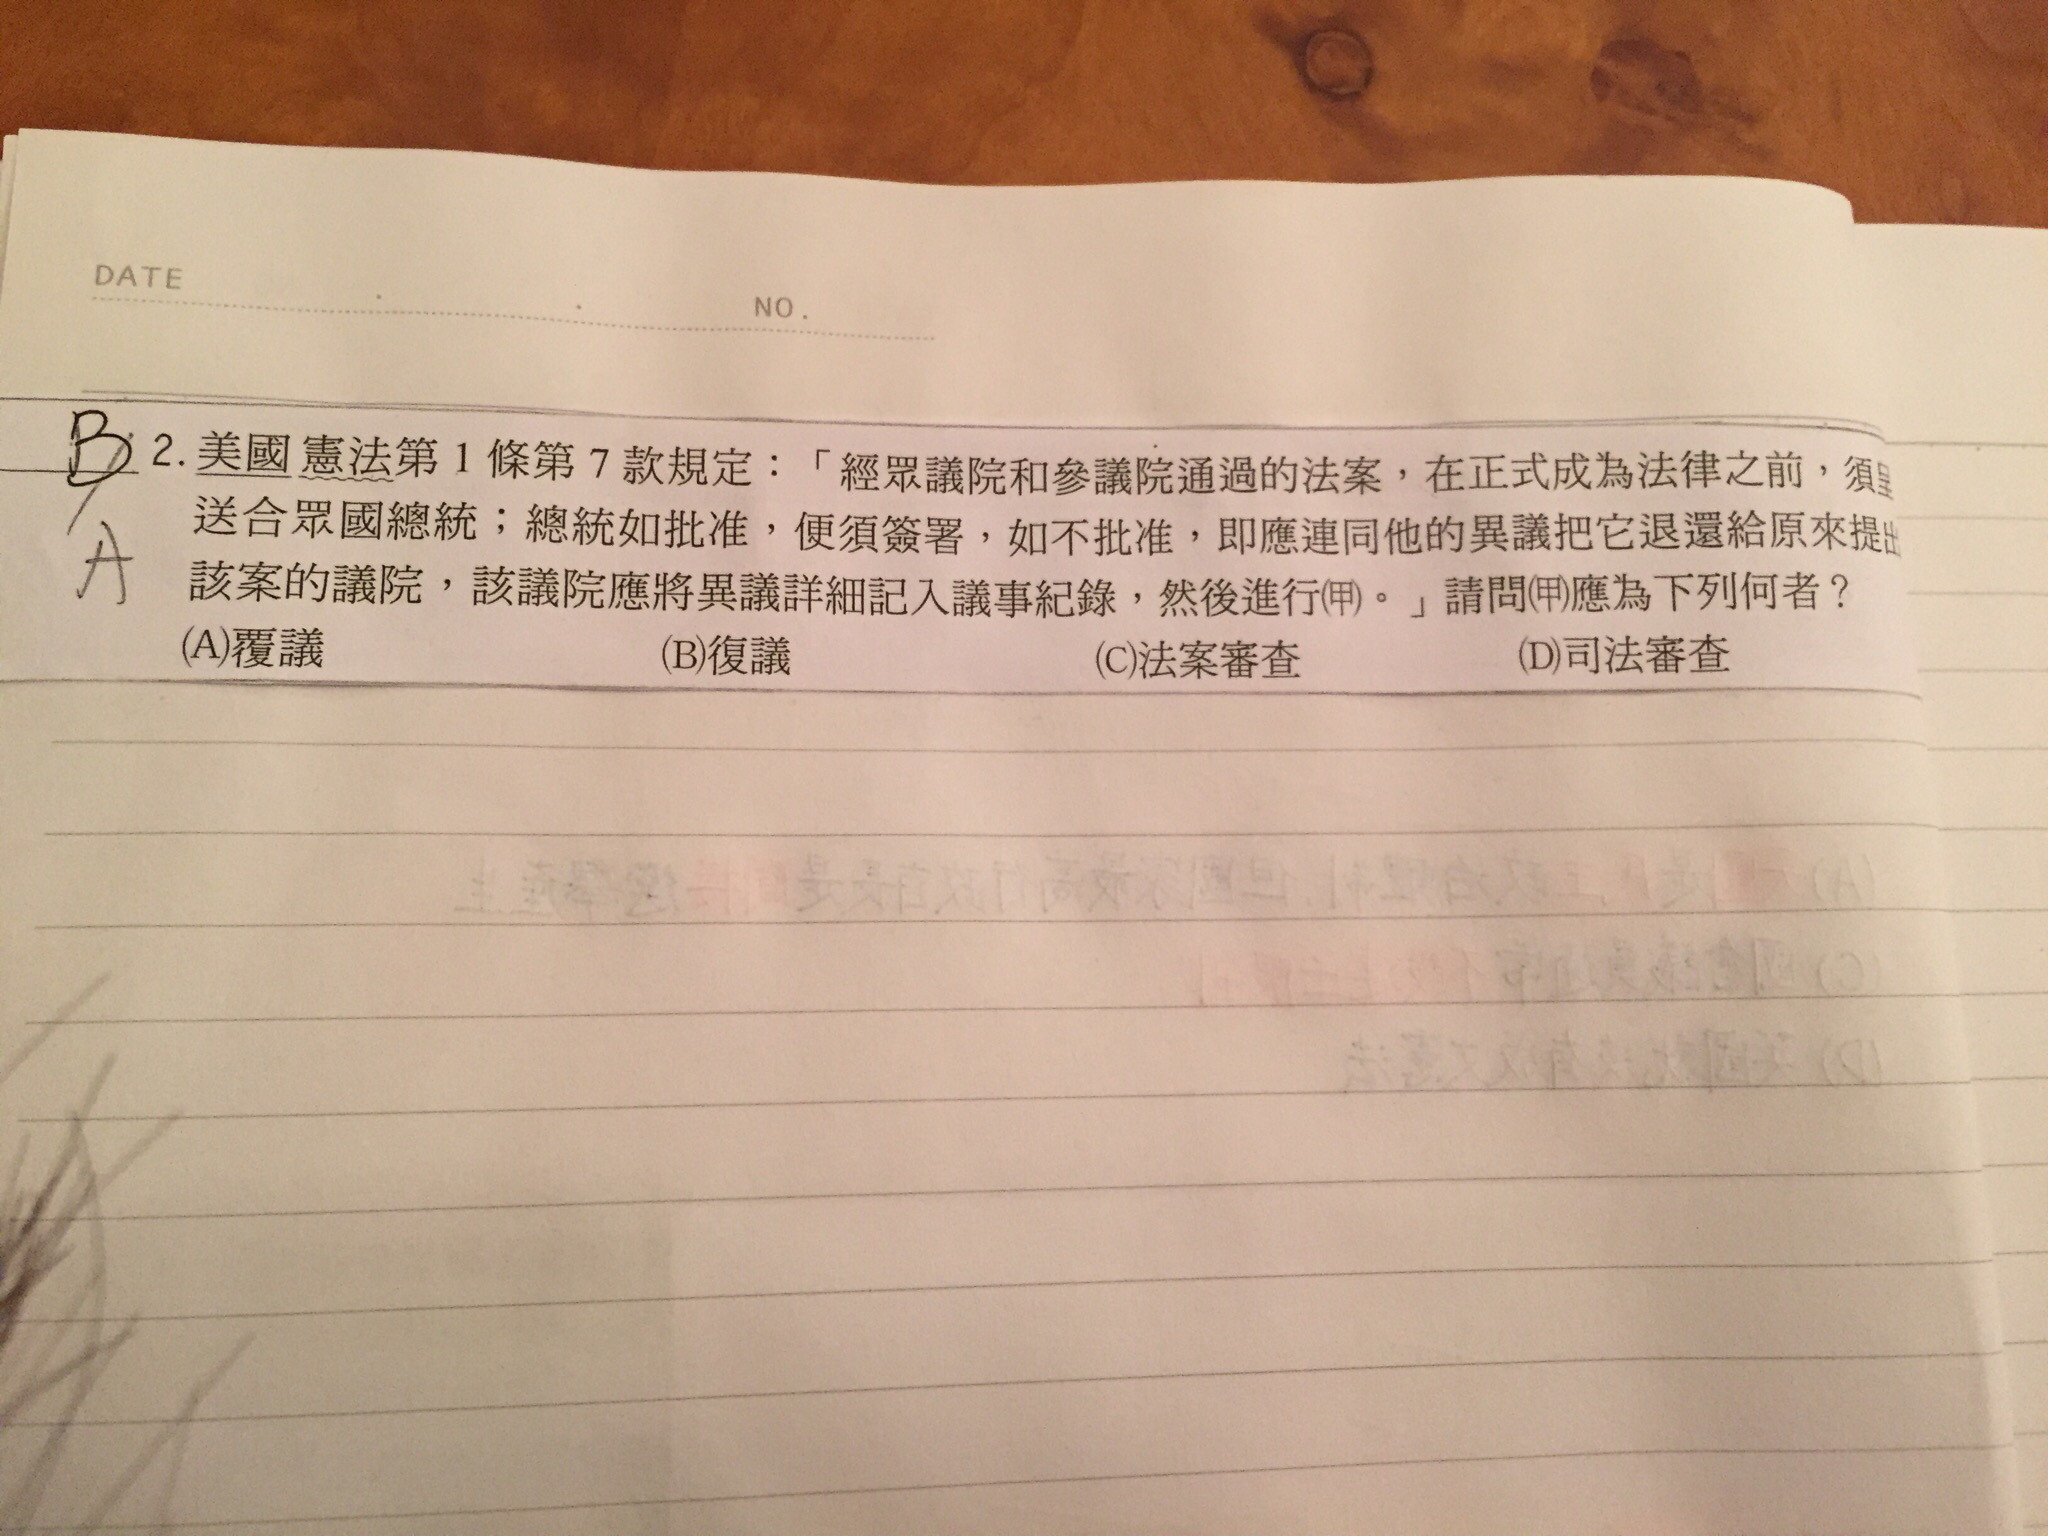 DATE
NO.
B
2. 美國憲法第1條第7款規定：「經眾議院和參議院通過的法案，在正式成為法律之前，須呈
送合眾國總統；總統如批准，便須簽署，如不批准，即應連同他的異議把它退還給原來提出
A
該案的議院，該議院應將異議詳細記入議事紀錄，然後進行(甲)。」請問(甲)應為下列何者？
(A)覆議 (B)復議 (C)法案審查 (D)司法審查